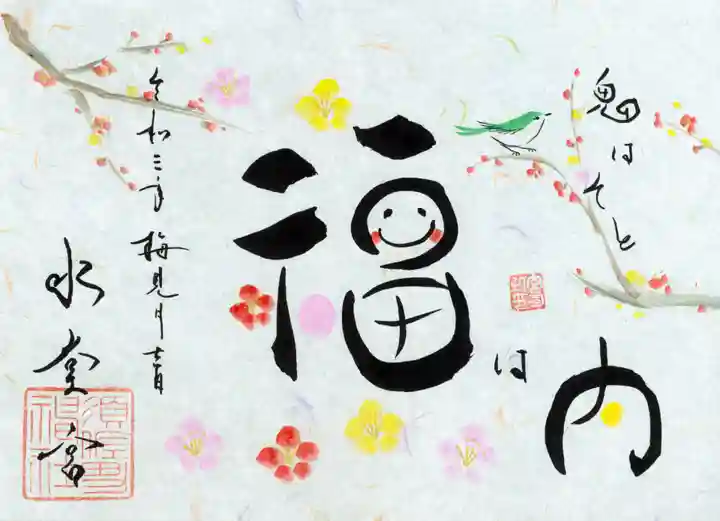 鬼はそと
福は内
令和三年 梅見月
水堂宮